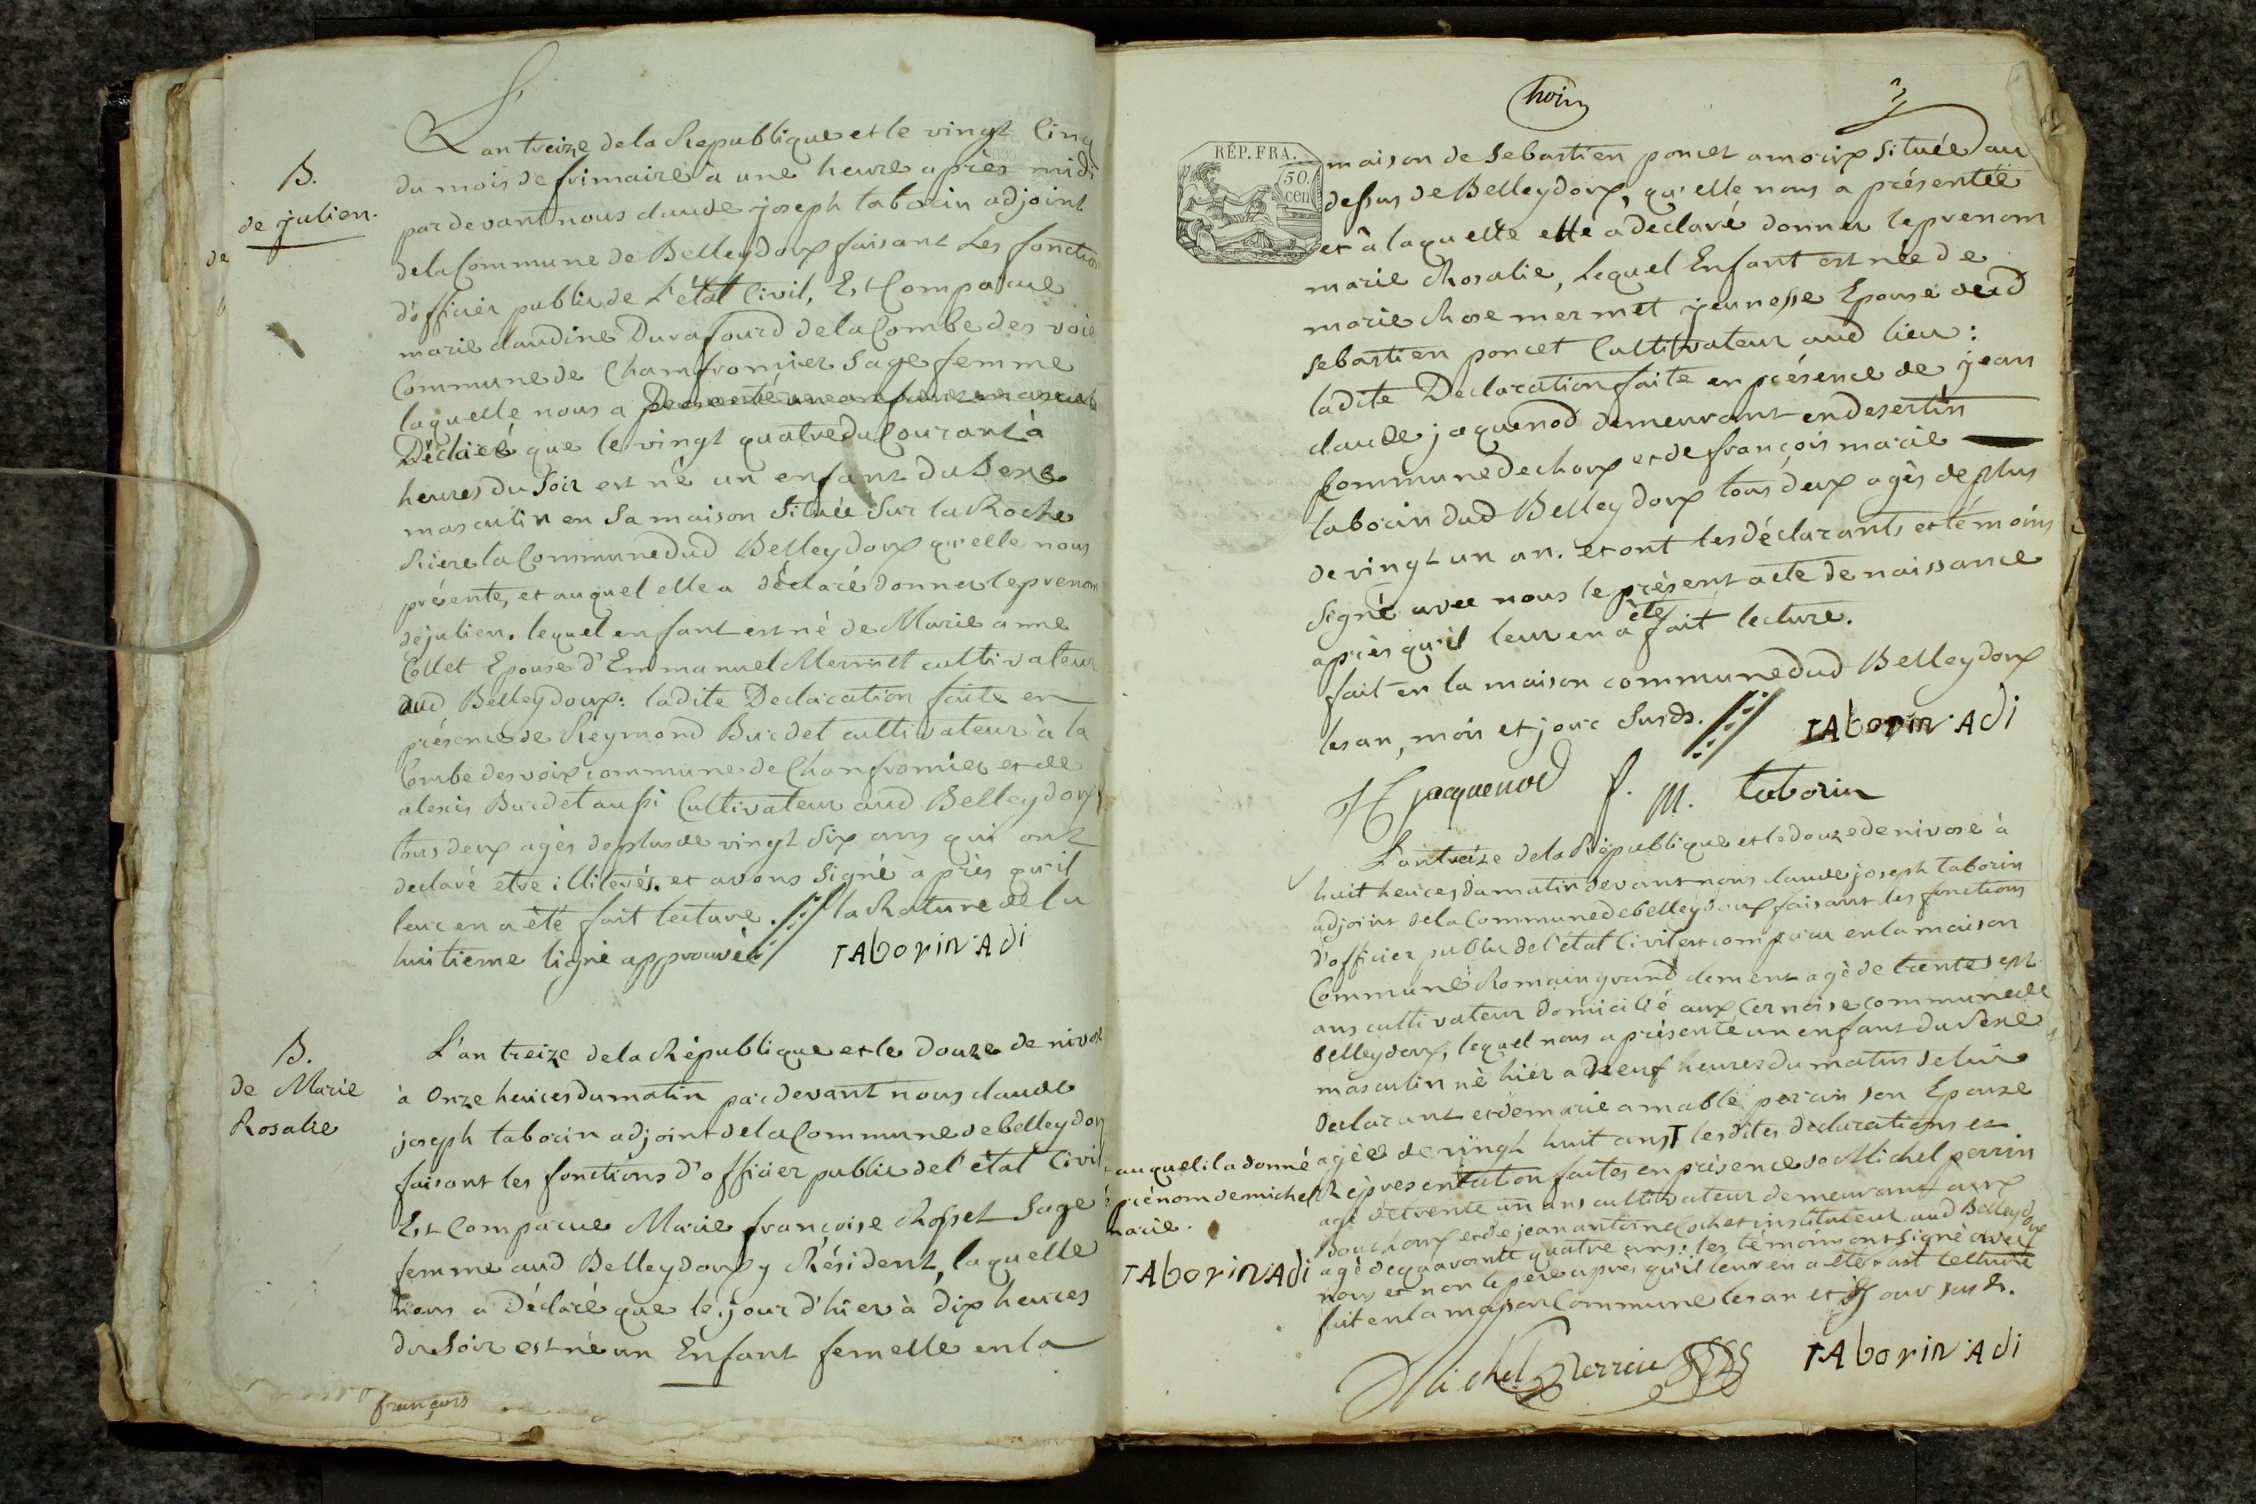 B.
de julien.
L'an treize de la Republique et le vingt Cinq
du mois de frimaire à une heure après midi
par devant nous claude joseph taborin adjoint
de la Commune de Belleydoux faisant Les fonction
d'officier public de L'état Civil, Est Comparue
marie claudine Durafourd de la Combe des voie
Commune de Chamfromier Sage femme
laquelle nous a
Déclaré que le vingt quatre du Courant à
heures du Soir est né un enfant du Sexe
masculin en Sa maison Située Sur la Roche
Riere la Commune dud Belleydoux qu'elle nous
présente, et auquel elle a déclaré donner le prenom
de julien. lequel enfant est né de Marie anne
Collet Epouse d'Emmanuel Mermet cultivateur
aud Belleydoux: ladite Declaration faite en
présence de Reymond Burdet cultivateur à la
Combe des voix commune de Chanfromier et de
alexis Burdet aussi Cultivateur aud Belleydoux
tous deux agés de plus de vingt Six ans qui ont
declaré etre illiterés. et avons Signé après qu'il
leur en a été fait lecture. la Rature de la
huitieme ligne approuvée
TAborin Adi
B.
de Marie
Rosalie
L'an treize de la République et le douze de nivose
à Onze heures du matin par devant nous claude
joseph taborin adjoint de la Commune de belleydoux
faisant les fonctions d'officier public de l'état Civil
Est Comparue Marie françoise Rosset Sage
femme aud Belleydoux y Résident, laquelle
nous a Déclaré que le jour d'hier à dix heures
du Soir est né un Enfant femelle en la
françois
RÉP. FRA.
50.
cen
maison de Sebastien poncet amoux Située au
dessus de Belleydoux, qu'elle nous a présentée
et à laquelle elle a declaré donner le prenom
marie Rosalie, Lequel Enfant est née de
marie Rose mermet jeunesse Epouse dud
Sebastien poncet Cultivateur aud lieu:
ladite Declaration faite en présence de jean
claude jaquenod demeurant en desertin
Commune de choux et de françois marie
taborin dud Belleydoux tous deux agés de plus
de vingt un an. et ont les déclarants et témoins
Signé avec nous le présent acte de naissance
après qu'il leur en a été fait lecture.
fait en la maison commune dud Belleydoux
les an, mois et jour Susds.
TAborin Adi
jacquenod f. m. taborin
L'an treize de la République et le douze de nivose à
huit heures du matin devant nous claude joseph taborin
adjoint de la Commune de belleydoux faisant les fonctions
d'officier public de l'état Civil est comparu en la maison
Commune Romain grand clement agé de trente sept
ans cultivateur domicilié aux Cernoise commune de
belleydoux, lequel nous a présenté un enfant du Sexe
masculin né hier a neuf heures du matin de lui
Declarant et de marie amable perrin son Epouse
agée de vingt huit ans lesdites declarations et
Représentation faites en présence de Michel perrin
agé de trente un ans cultivateur demeurant aux
bouchoux et de jean antoine Cochet instituteur aud Belleydoux
agé de quarante quatre ans: les témoins ont Signé avec
nous et non le pere après qu'il leur en a été fait lecture
fait en la maison Commune les an et jour sus ds.
auquel il a donné
prénom de michel
marie.
TAborin Adi
Michel Perrin
TAborin Adi